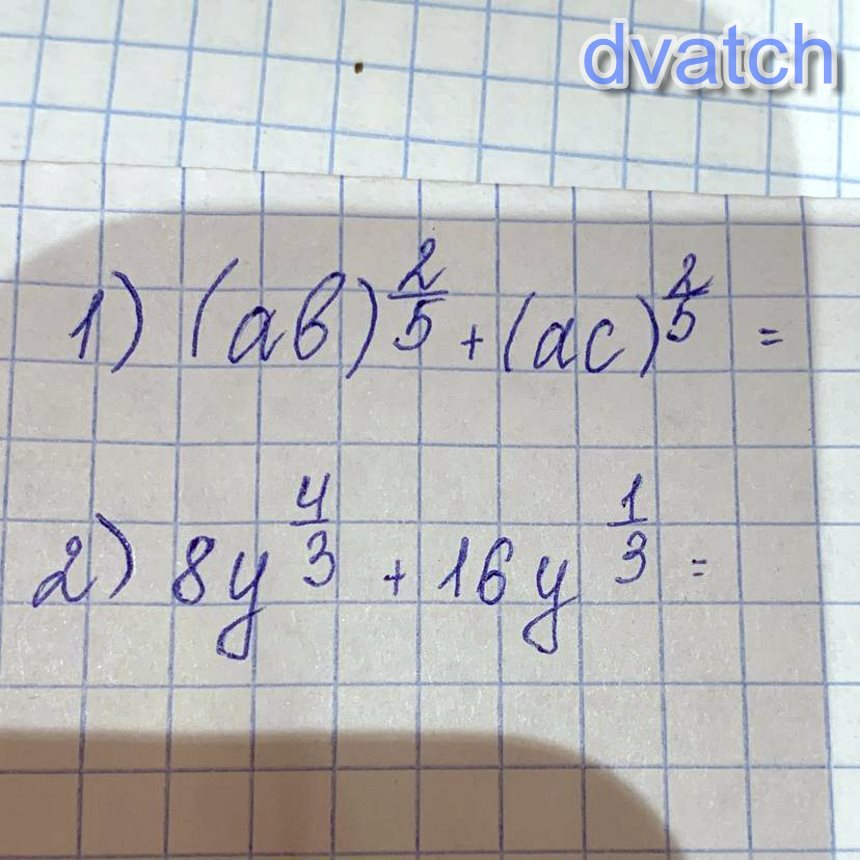 dvatch
1) (ab)^(2/5) + (ac)^(2/5) =
2) 8y^(4/3) + 16y^(1/3) =